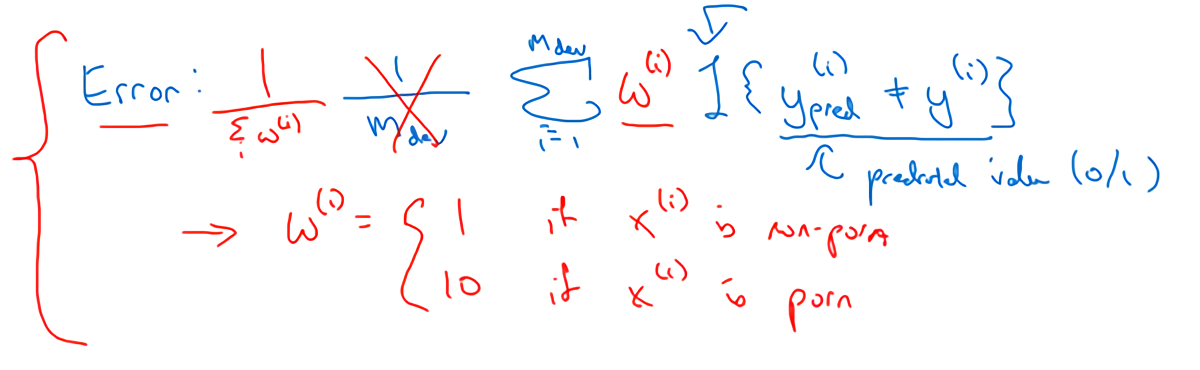 Error: 1/Σ_i w^(i) 1/m_dev Σ_{i=1}^{m_dev} w^(i) I{y_pred^(i) ≠ y^(i)}
predicted value (0/1)
→ w^(i) = { 1 if x^(i) is non-porn
10 if x^(i) is porn